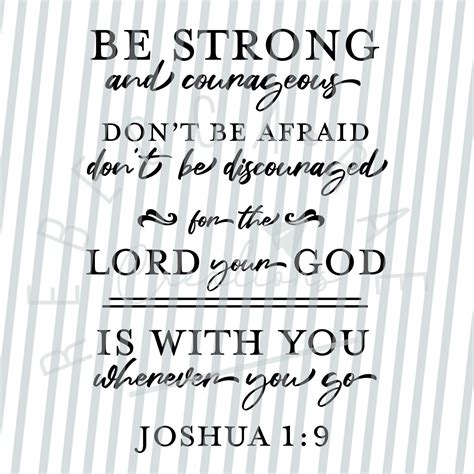 BE STRONG
and courageous
DON'T BE AFRAID
don't be discouraged
for the
LORD your GOD
IS WITH YOU
wherever you go
JOSHUA 1:9
Creations